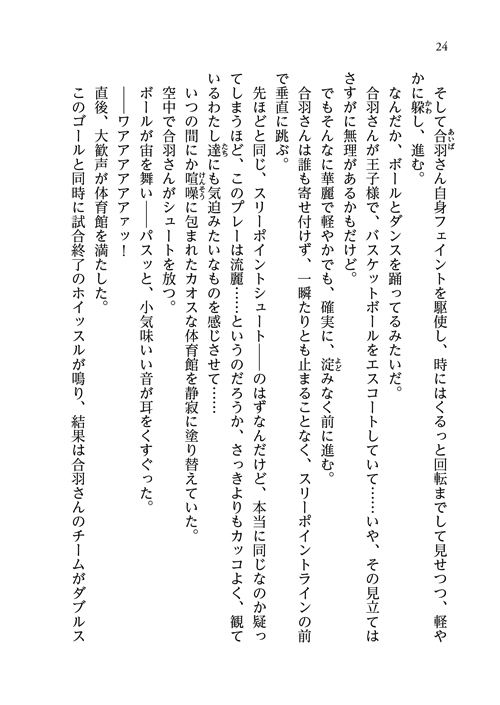 24
そして合羽さん自身フェイントを駆使し、時にはくるっと回転までして見せつつ、軽や
かに躱し、進む。
なんだか、ボールとダンスを踊ってるみたいだ。
合羽さんが王子様で、バスケットボールをエスコートしていて……いや、その見立ては
さすがに無理があるかもだけど。
でもそんなに華麗で軽やかでも、確実に、淀みなく前に進む。
合羽さんは誰も寄せ付けず、一瞬たりとも止まることなく、スリーポイントラインの前
で垂直に跳ぶ。
先ほどと同じ、スリーポイントシュート――のはずなんだけど、本当に同じなのか疑っ
てしまうほど、このプレーは流麗……というのだろうか、さっきよりもカッコよく、観て
いるわたし達にも気迫みたいなものを感じさせて……
いつの間にか喧噪に包まれたカオスな体育館を静寂に塗り替えていた。
空中で合羽さんがシュートを放つ。
ボールが宙を舞い――パスッと、小気味いい音が耳をくすぐった。
――ワアアアアアアアッ！
直後、大歓声が体育館を満たした。
このゴールと同時に試合終了のホイッスルが鳴り、結果は合羽さんのチームがダブルス